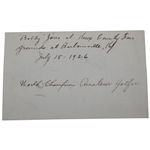 Bobby Jones at Knox County Fair
grounds at Barbourville, Ky
July 18 - 1926
World Champion Amateur Golfer